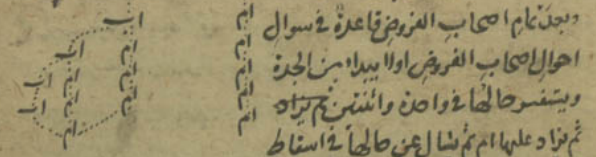 وبعد تمام اصحاب الفروض قاعدة في سوال
احوال اصحاب الفروض اولا يبدا من الجدة
حالها في واحدة واثنتين ثم يزاد
ثم تزاد عليها ام ثم يسال عن حالها في اسقاط
ام
ام
ام
ام
ام
اب
ام
ام
ام
اب
ام
ام
ام
اب
ام
اب